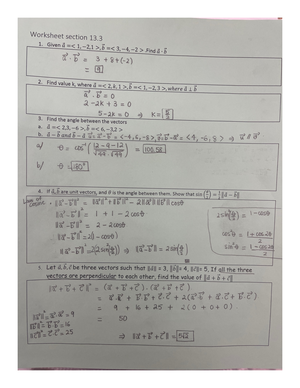 Worksheet section 13.3
1. Given a⃗ =< 1, −2,1 >, b⃗ =< 3, −4, −2 > .Find a⃗ · b⃗
a⃗ · b⃗ = 3 + 8 + (-2)
= 9
2. Find value k, where a⃗ =< 2, k, 1 >, b⃗ =< 1, −2,3 >, where a⃗ ⊥ b⃗
a⃗ · b⃗ = 0
2 - 2k + 3 = 0
5 - 2k = 0 ⇒ k = 5/2
3. Find the angle between the vectors
a. a⃗ =< 2,3, −6 >, b⃗ =< 6, −3,2 >
a) θ = cos⁻¹ (12 - 9 - 12 / √49 · √49) =
b/ θ =
4. If a⃗, b⃗ are unit vectors, and θ is the angle between them. Show that sin(θ/2) = 1/2 ‖a⃗ − b⃗‖
Law of Cosines
‖a⃗ - b⃗‖² = ‖a⃗‖² + ‖b⃗‖² - 2‖a⃗‖‖b⃗‖ cosθ
‖a⃗ - b⃗‖² = 1 + 1 - 2cosθ
‖a⃗ - b⃗‖² = 2 - 2cosθ
‖a⃗ - b⃗‖² = 2(1 - cosθ)
2sin²(θ/2) = 1 - cosθ
cos²θ = 1 + cos2θ / 2
sin²θ = 1 - cos2θ / 2
5. Let a⃗, b⃗, c⃗ be three vectors such that ‖a⃗‖ = 3, ‖b⃗‖ = 4, ‖c⃗‖ = 5, If all the three
vectors are perpendicular to each other, find the value of ‖a⃗ + b⃗ + c⃗‖
‖a⃗ + b⃗ + c⃗‖² = (a⃗ + b⃗ + c⃗) · (a⃗ + b⃗ + c⃗)
= a⃗·a⃗ + b⃗·b⃗ + c⃗·c⃗ + 2(a⃗·b⃗ + a⃗·c⃗ + b⃗·c⃗)
= 9 + 16 + 25 + 2(0 + 0 + 0)
= 50
‖a⃗‖² = a⃗·a⃗ = 9
‖b⃗‖² = b⃗·b⃗ = 16
‖c⃗‖² = c⃗·c⃗ = 25
⇒ ‖a⃗ + b⃗ + c⃗‖ = 5√2